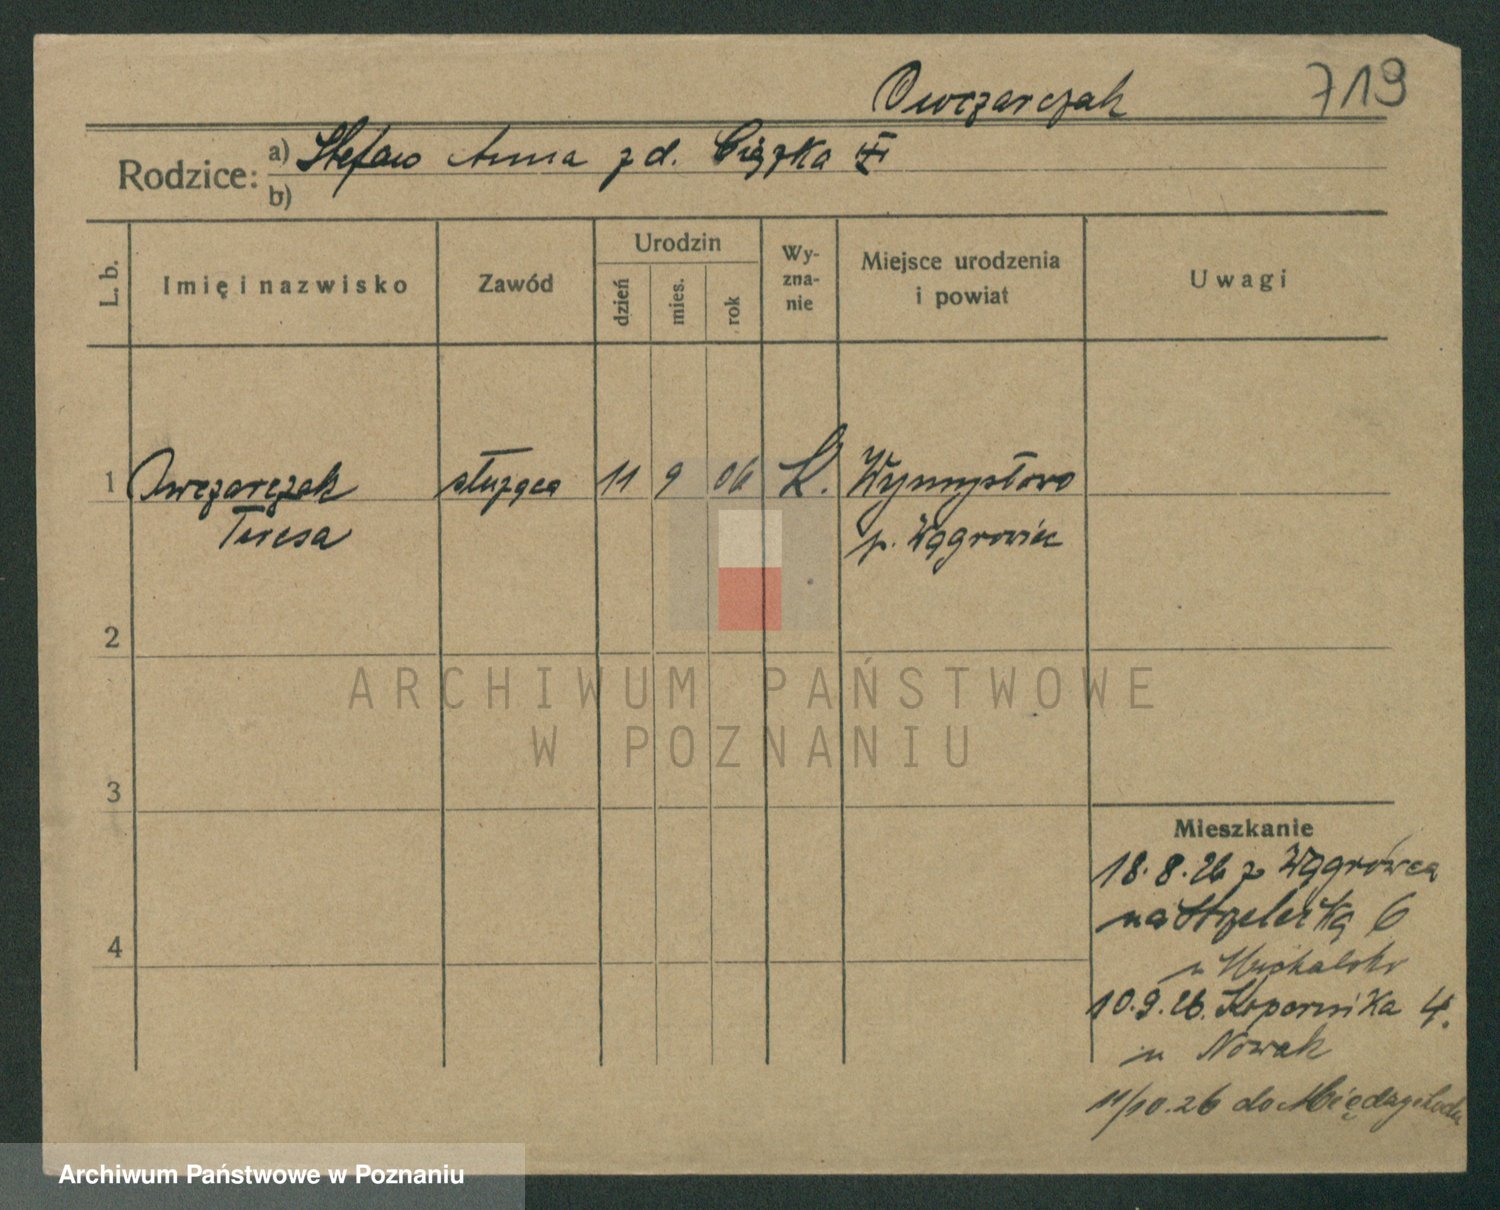 Owczarczak 719
Rodzice: a) Stefan Anna z d. Ciązka
b)
L. b. Imię i nazwisko Zawód Urodzin dzień mies. rok Wy-zna-nie Miejsce urodzenia i powiat Uwagi
1 Owczarczak służąca 11 9 06 K. Wymysłowo
Teresa p. Wągrowiec
2
ARCHIWUM PAŃSTWOWE
W POZNANIU
3
Mieszkanie
18.8.26 z Wągrówca
na Strzelecką 6
4
u Michalski
10.9.26. Kopernika 4.
u Nowak
11/10.26 do Międzychodu
Archiwum Państwowe w Poznaniu